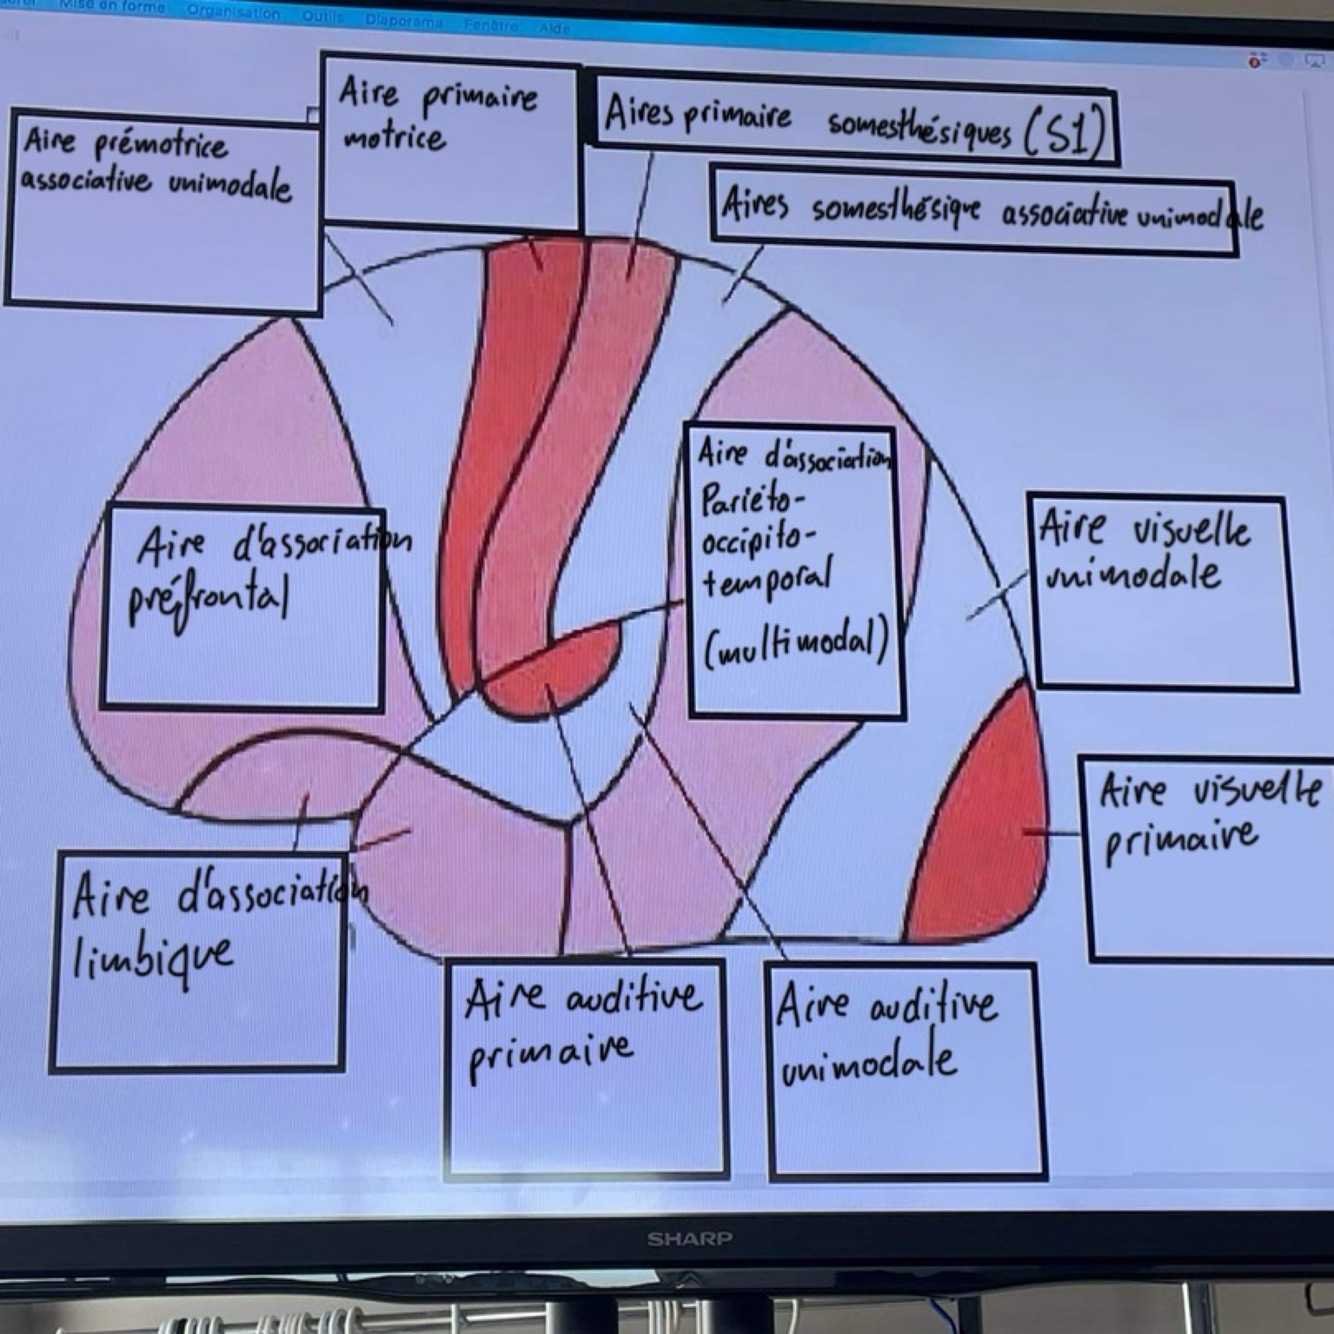 Mise en forme Organisation Outils Diaporama Fenêtre Aide
Aire prémotrice
associative unimodale
Aire primaire
motrice
Aires primaire somesthésiques (S1)
Aires somesthésique associative unimodale
Aire d'association
préfrontal
Aire d'association
Pariéto-
occipito-
temporal
(multimodal)
Aire visuelle
unimodale
Aire visuelle
primaire
Aire d'association
limbique
Aire auditive
primaire
Aire auditive
unimodale
SHARP